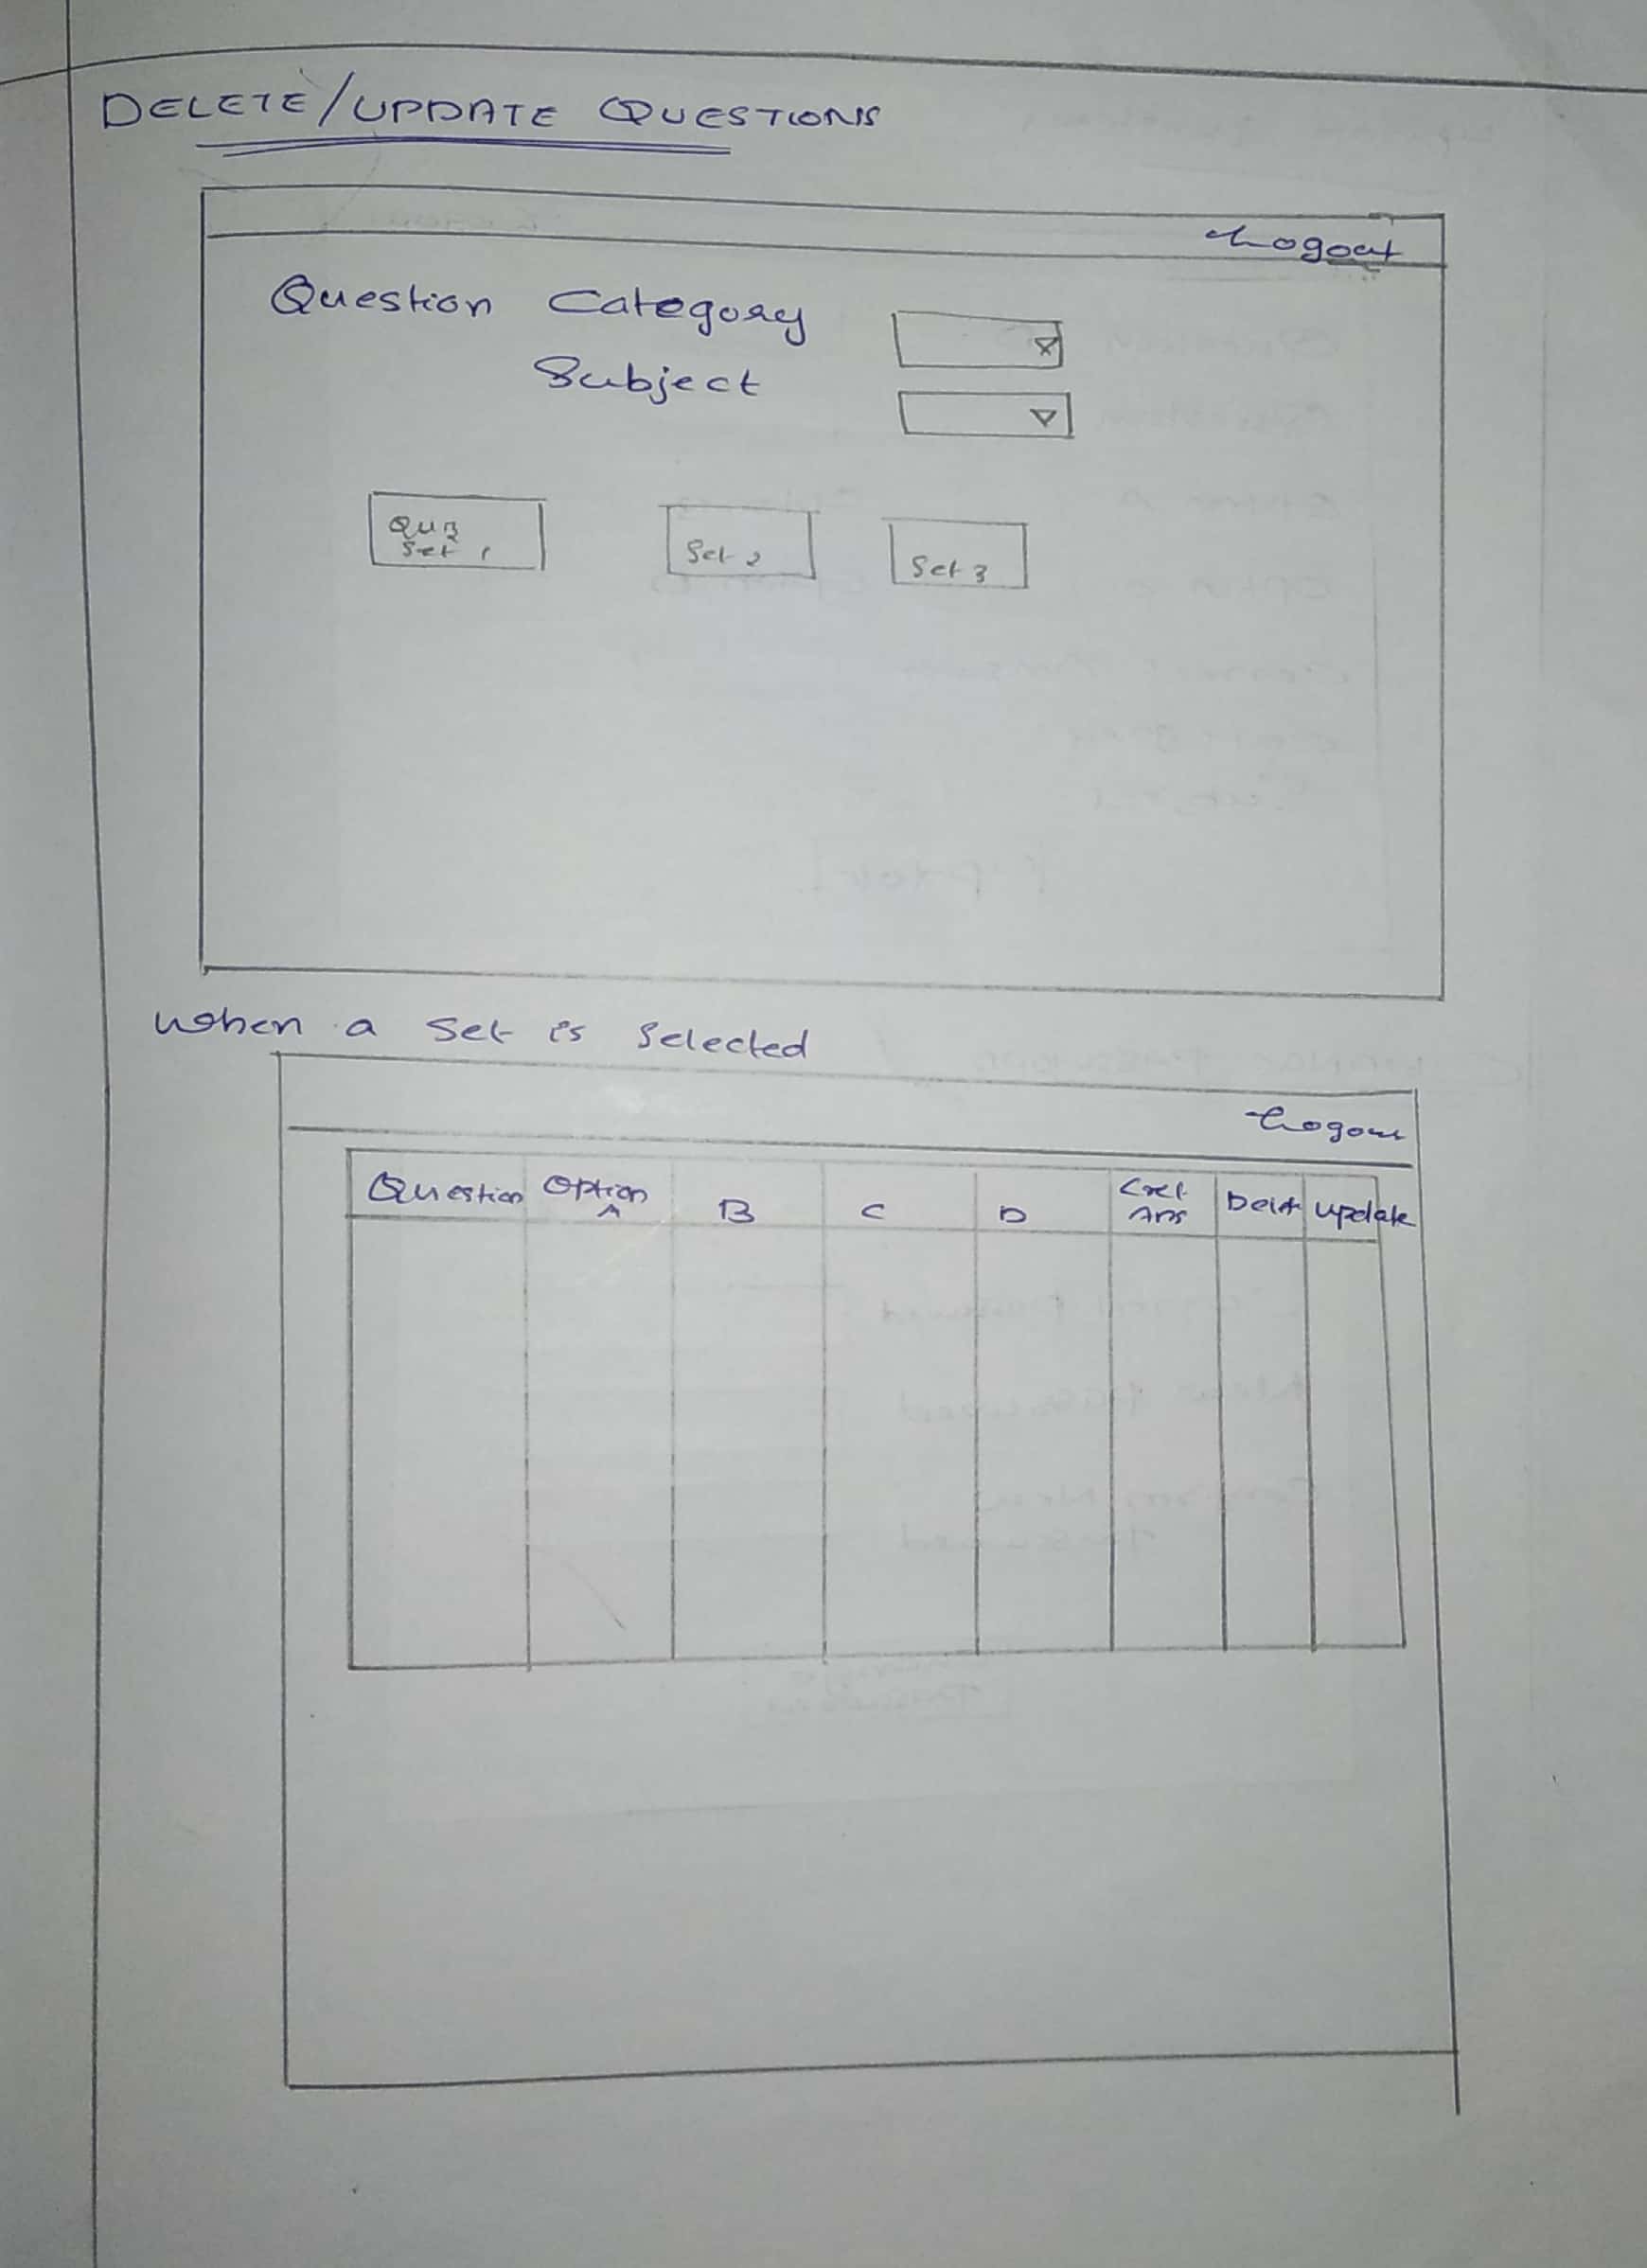 DELETE/UPDATE QUESTIONS
Logout
Question Category
Subject
Quiz
Set 1
Set 2
Set 3
When a Set is Selected
Logout
Question Option A B C D Crct Ans Delt Update